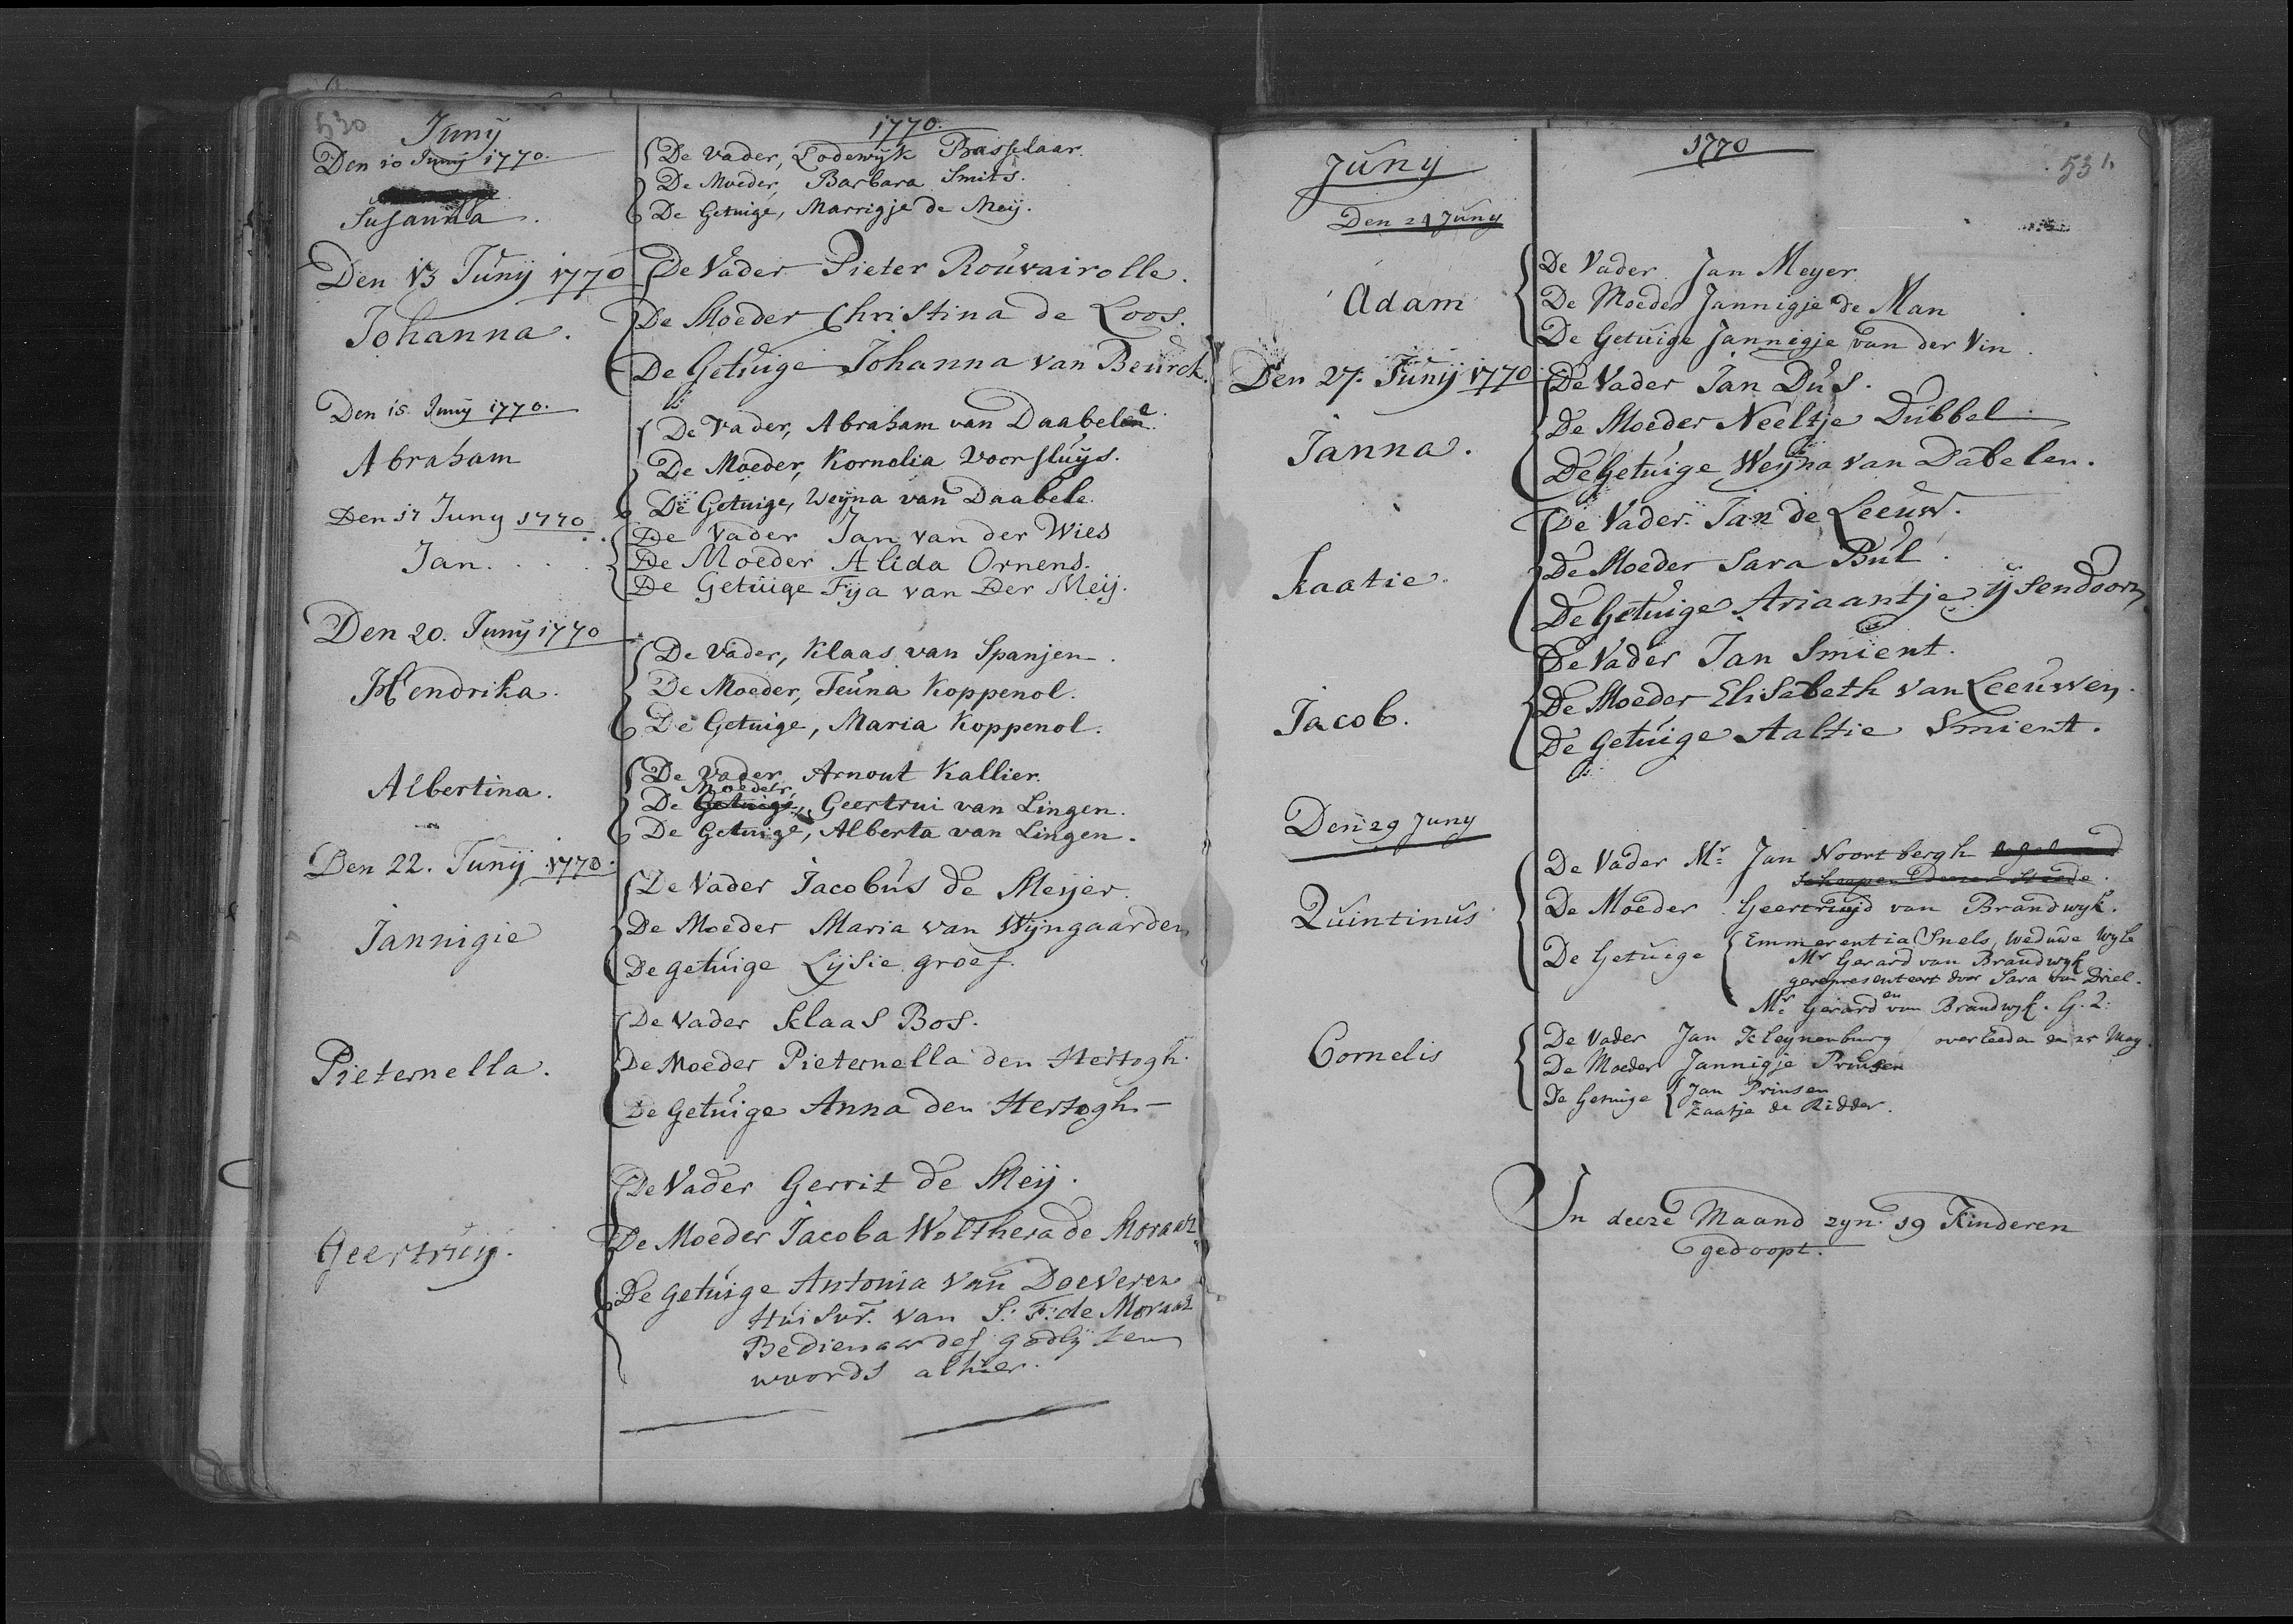 530
Juny
1770.
Den 10 Juny 1770.
Susanna.
De Vader, Lodewyk Basselaar.
De Moeder, Barbara Smits.
De Getuige, Marrigje de Meij.
Den 13 Junij 1770
Johanna.
De Vader Pieter Rouvairolle.
De Moeder Christina de Loos.
De Getuige Johanna van Beurck.
Den 15 Junij 1770.
Abraham
De Vader, Abraham van Daabele
De Moeder, Kornelia Voorsluijs.
De Getuige, Weyna van Daabele.
Den 17 Juny 1770
Jan. . . .
De Vader Jan van der Wies
De Moeder Alida Ornens.
De Getuige Fija van Der Meij.
Den 20. Junij 1770
Hendrika.
De Vader, Klaas van Spanjen.
De Moeder, Teuna Koppenol.
De Getuige, Maria Koppenol.
Albertina.
De Vader, Arnout Kallier.
Moeder,
De Getuige, Geertrui van Lingen.
De Getuige, Alberta van Lingen.
Den 22. Junij 1770.
Jannigie
De Vader Jacobus de Meijer.
De Moeder Maria van Wijngaarden
De getuige Lijsie groef.
Pieternella.
De Vader Klaas Bos.
De Moeder Pieternella den Hertogh.
De Getuige Anna den Hertogh –
Geertruij.
De Vader Gerrit de Meij.
De Moeder Jacoba Wolthera de Moraaz
De Getuige Antonia van Doeveren
Huisvr. van S: F: de Moraaz
Bedienaar des godlijken
woords alhier.
Juny
1770
531
Den 24 Juny
Adam
De Vader Jan Meyer
De Moeder Jannigje de Man
De Getuige Jannigje van der Vin.
Den 27. Junij 1770
Janna.
De Vader Jan Dus.
De Moeder Neeltje Dubbel
De Getuige Weyna van Dabelen.
Kaatie.
De Vader Jan de Leeuw.
De Moeder Sara Bul.
De Getuige Ariaantje ijsendoorn
Jacob.
De Vader Jan Smient.
De Moeder Elisabeth van Leeuwen.
De Getuige Aaltie Smient.
Den 29 Juny
Quintinus
De Vader Mr. Jan Noortbergh
Scheepen Deezer Steede.
De Moeder Geertruyd van Brandwyk.
De Getuige Emmerentia Snels, weduwe wyle
Mr Gerard van Brandwyk
gerepresenteert door Sara van Driel.
en
Mr. Gerard van Brandwyk. G. Z:
Cornelis
De Vader Jan Kleynenburg overleeden den 25 May.
De Moeder Jannigje Prinsen
De Getuige Jan Prinsen
Kaatje de Ridder.
In deeze Maand zyn 19 Kinderen
gedoopt.